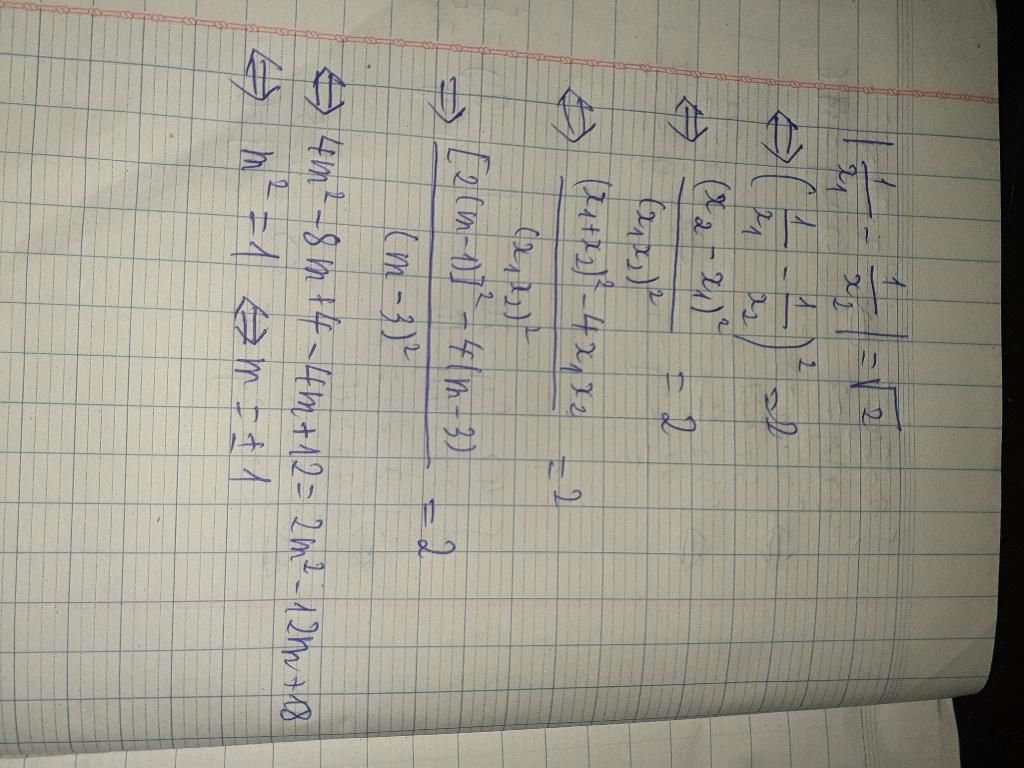 | 1/x₁ - 1/x₂ | = √2
⇔ (1/x₁ - 1/x₂)² = 2
⇔ (x₂ - x₁)² / (x₁x₂)² = 2
⇔ ((x₁+x₂)² - 4x₁x₂) / (x₁x₂)² = 2
⇒ ([2(m-1)]² - 4(m-3)) / (m-3)² = 2
⇔ 4m² - 8m + 4 - 4m + 12 = 2m² - 12m + 18
⇔ m² = 1 ⇔ m = ±1